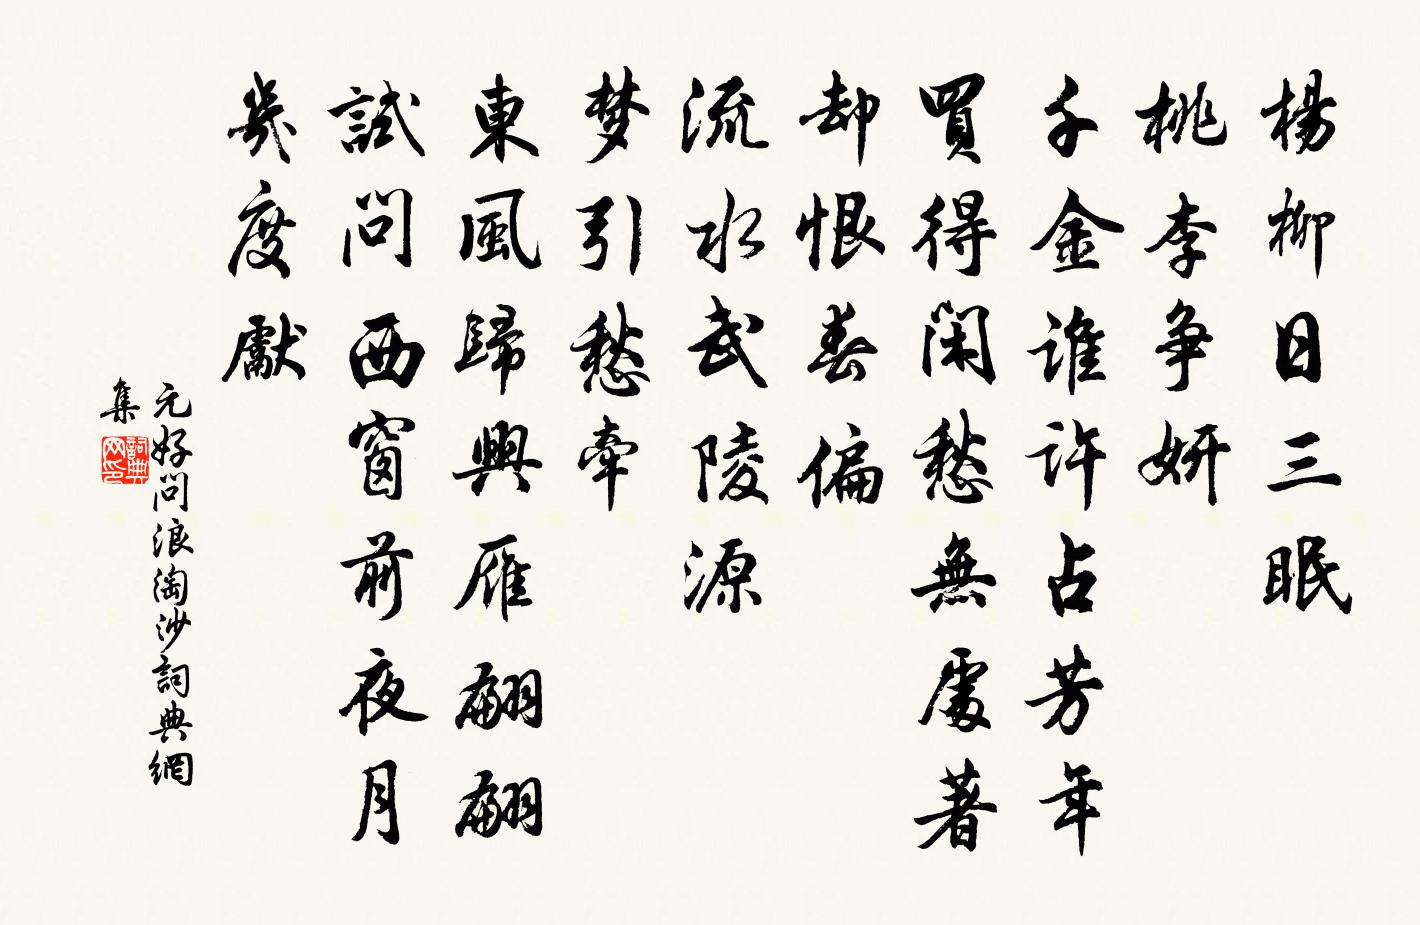 楊柳日三眠
桃李争妍
千金誰許占芳年
買得閑愁無處著
却恨春偏
流水武陵源
梦引愁牽
東風歸興雁翩翩
試問西窗前夜月
幾度獻
元好問浪淘沙詞典網
集
詞典
网印